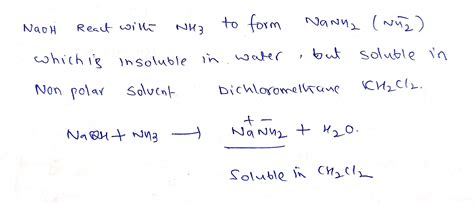 NaOH React with NH3 to form NaNH2 (NH2̄)
which is insoluble in water, but soluble in
Non polar solvent Dichloromethane CH2Cl2.
NaOH + NH3 ⟶ Na⁺NH2⁻ + H2O.
Soluble in CH2Cl2